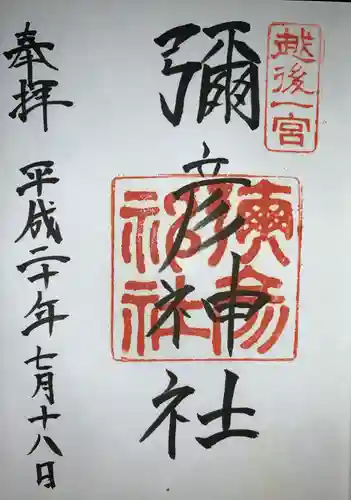 越後一宮
彌彦神社
奉拝
平成二十年七月十八日